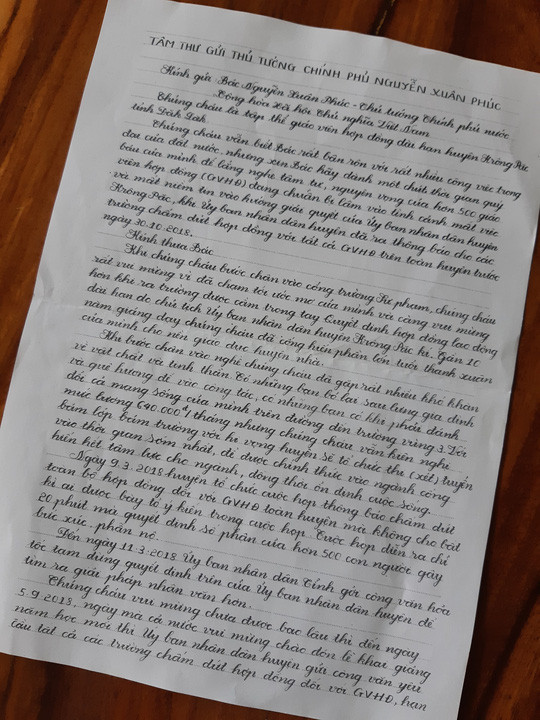 TÂM THƯ GỬI THỦ TƯỚNG CHÍNH PHỦ NGUYỄN XUÂN PHÚC
Kính gửi: Bác Nguyễn Xuân Phúc - Thủ tướng Chính phủ nước
Cộng hòa Xã hội Chủ nghĩa Việt Nam
Chúng cháu là tập thể giáo viên hợp đồng dài hạn huyện Krông Pắc
tỉnh Đắk Lắk.
Chúng cháu vẫn biết Bác rất bận rộn với rất nhiều công việc trọng
đại của đất nước nhưng xin Bác hãy dành một chút thời gian quý
báu của mình để lắng nghe tâm tư, nguyện vọng của hơn 500 giáo
viên hợp đồng (GVHĐ) đang chuẩn bị lâm vào tình cảnh mất việc
và mất niềm tin vào hướng giải quyết của Ủy ban nhân dân huyện
Krông Pắc, khi Ủy ban nhân dân huyện đã ra thông báo cho các
trường chấm dứt hợp đồng với tất cả GVHĐ trên toàn huyện trước
ngày 30.10.2018.
Kính thưa Bác
Khi chúng cháu bước chân vào cổng trường Sư phạm, chúng cháu
rất vui mừng vì đã chạm tới ước mơ của mình và càng vui mừng
hơn khi ra trường được cầm trong tay Quyết định hợp đồng lao động
dài hạn do chủ tịch Ủy ban nhân dân huyện Krông Pắc kí. Gần 10
năm giảng dạy chúng cháu đã cống hiến phần lớn tuổi thanh xuân
của mình cho nền giáo dục huyện nhà.
Khi bước chân vào nghề chúng cháu đã gặp rất nhiều khó khăn
về vật chất và tinh thần. Có những bạn bỏ lại sau lưng gia đình
và quê hương để vào công tác, có những bạn có khi phải đánh
đổi cả mạng sống của mình trên đường đến trường vùng 3. Với
mức lương 640.000đ/tháng nhưng chúng cháu vẫn kiên nghị
bám lớp bám trường với hi vọng huyện sẽ tổ chức thi (xét) tuyển
vào thời gian sớm nhất, để được chính thức vào ngành cống
hiến hết tâm lực cho ngành, đồng thời ổn định cuộc sống.
Ngày 9.3.2018 huyện tổ chức cuộc họp thông báo chấm dứt
toàn bộ hợp đồng đối với GVHĐ toàn huyện mà không cho bất
kì ai được bày tỏ ý kiến trong cuộc họp. Cuộc họp diễn ra chỉ
20 phút mà quyết định số phận của hơn 500 con người gây
bức xúc, phẫn nộ.
Đến ngày 11.3.2018 Ủy ban nhân dân Tỉnh gởi công văn hỏa
tốc tạm dừng quyết định trên của Ủy ban nhân dân huyện để
tìm ra giải pháp nhân văn hơn.
Chúng cháu vui mừng chưa được bao lâu thì đến ngày
5.9.2018, ngày mà cả nước vui mừng chào đón lễ khai giảng
năm học mới thì Ủy ban nhân dân huyện gửi công văn yêu
cầu tất cả các trường chấm dứt hợp đồng đối với GVHĐ, hạn